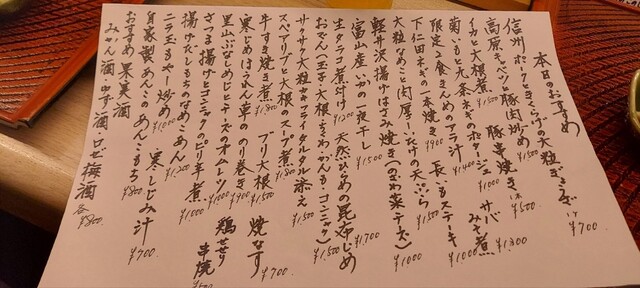 本日のおすすめ
信州ポークときくらげの大粒ぎょうざ ¥700
高原キャベツと豚肉炒め ¥1500 豚串焼き 2本 ¥500
イカと大根煮 ¥1500 サバみそ煮 ¥1300
菊いもと九条ネギのポタージュ ¥1000
限定1食 きんめのアラ汁 ¥1400 長いもステーキ ¥1000
下仁田ネギの一本焼き ¥900
大粒なめこと肉厚しいたけの天ぷら ¥1500
軽井沢揚げはさみ焼き(のざわ菜チーズ) ¥1000
富山産いかの一夜干し ¥1500
生タラコ煮付け ¥1200 天然ひらめの昆布じめ ¥1700
おでん(玉子 大根 ちくわ がんも コンニャク) ¥1500
スペアリブと大根のスープ煮 ¥1800
サクサク大粒カキフライ タルタル添え ¥1500
牛すき焼き煮 ¥1800 ブリ大根 ¥1500
寒じめほうれん草ののり巻き ¥900 焼なす ¥700
里山ぶなしめじとチーズのオムレツ ¥1000
さつま揚げとコンニャクのピリ辛煮 ¥1000 鶏せせり串焼
揚げだしもちのなめこあん ¥1200
ニラ玉もやし炒め ¥1000
自家製あんこのあんこもち ¥800 寒しじみ汁 ¥700
おすすめ果実酒
みかん酒 ゆず酒 ロゼ梅酒 各¥800